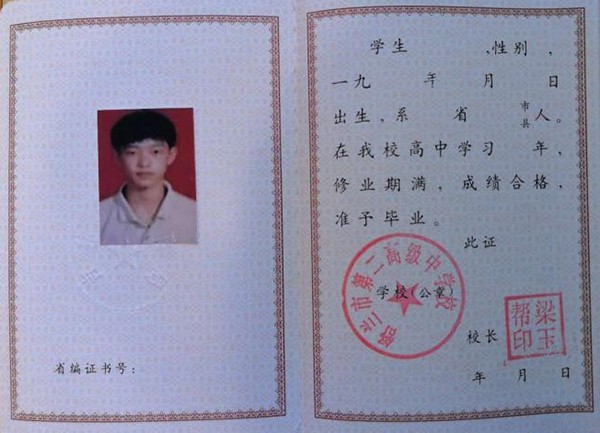 省编证书号：
学生 ，性别 ，
一九 年 月 日
出生，系 省 市县 人。
在我校高中学习 年，
修业期满，成绩合格，
准予毕业。
此证
市第二高级中学校
学校（公章）
校长
梁玉帮印
年 月 日